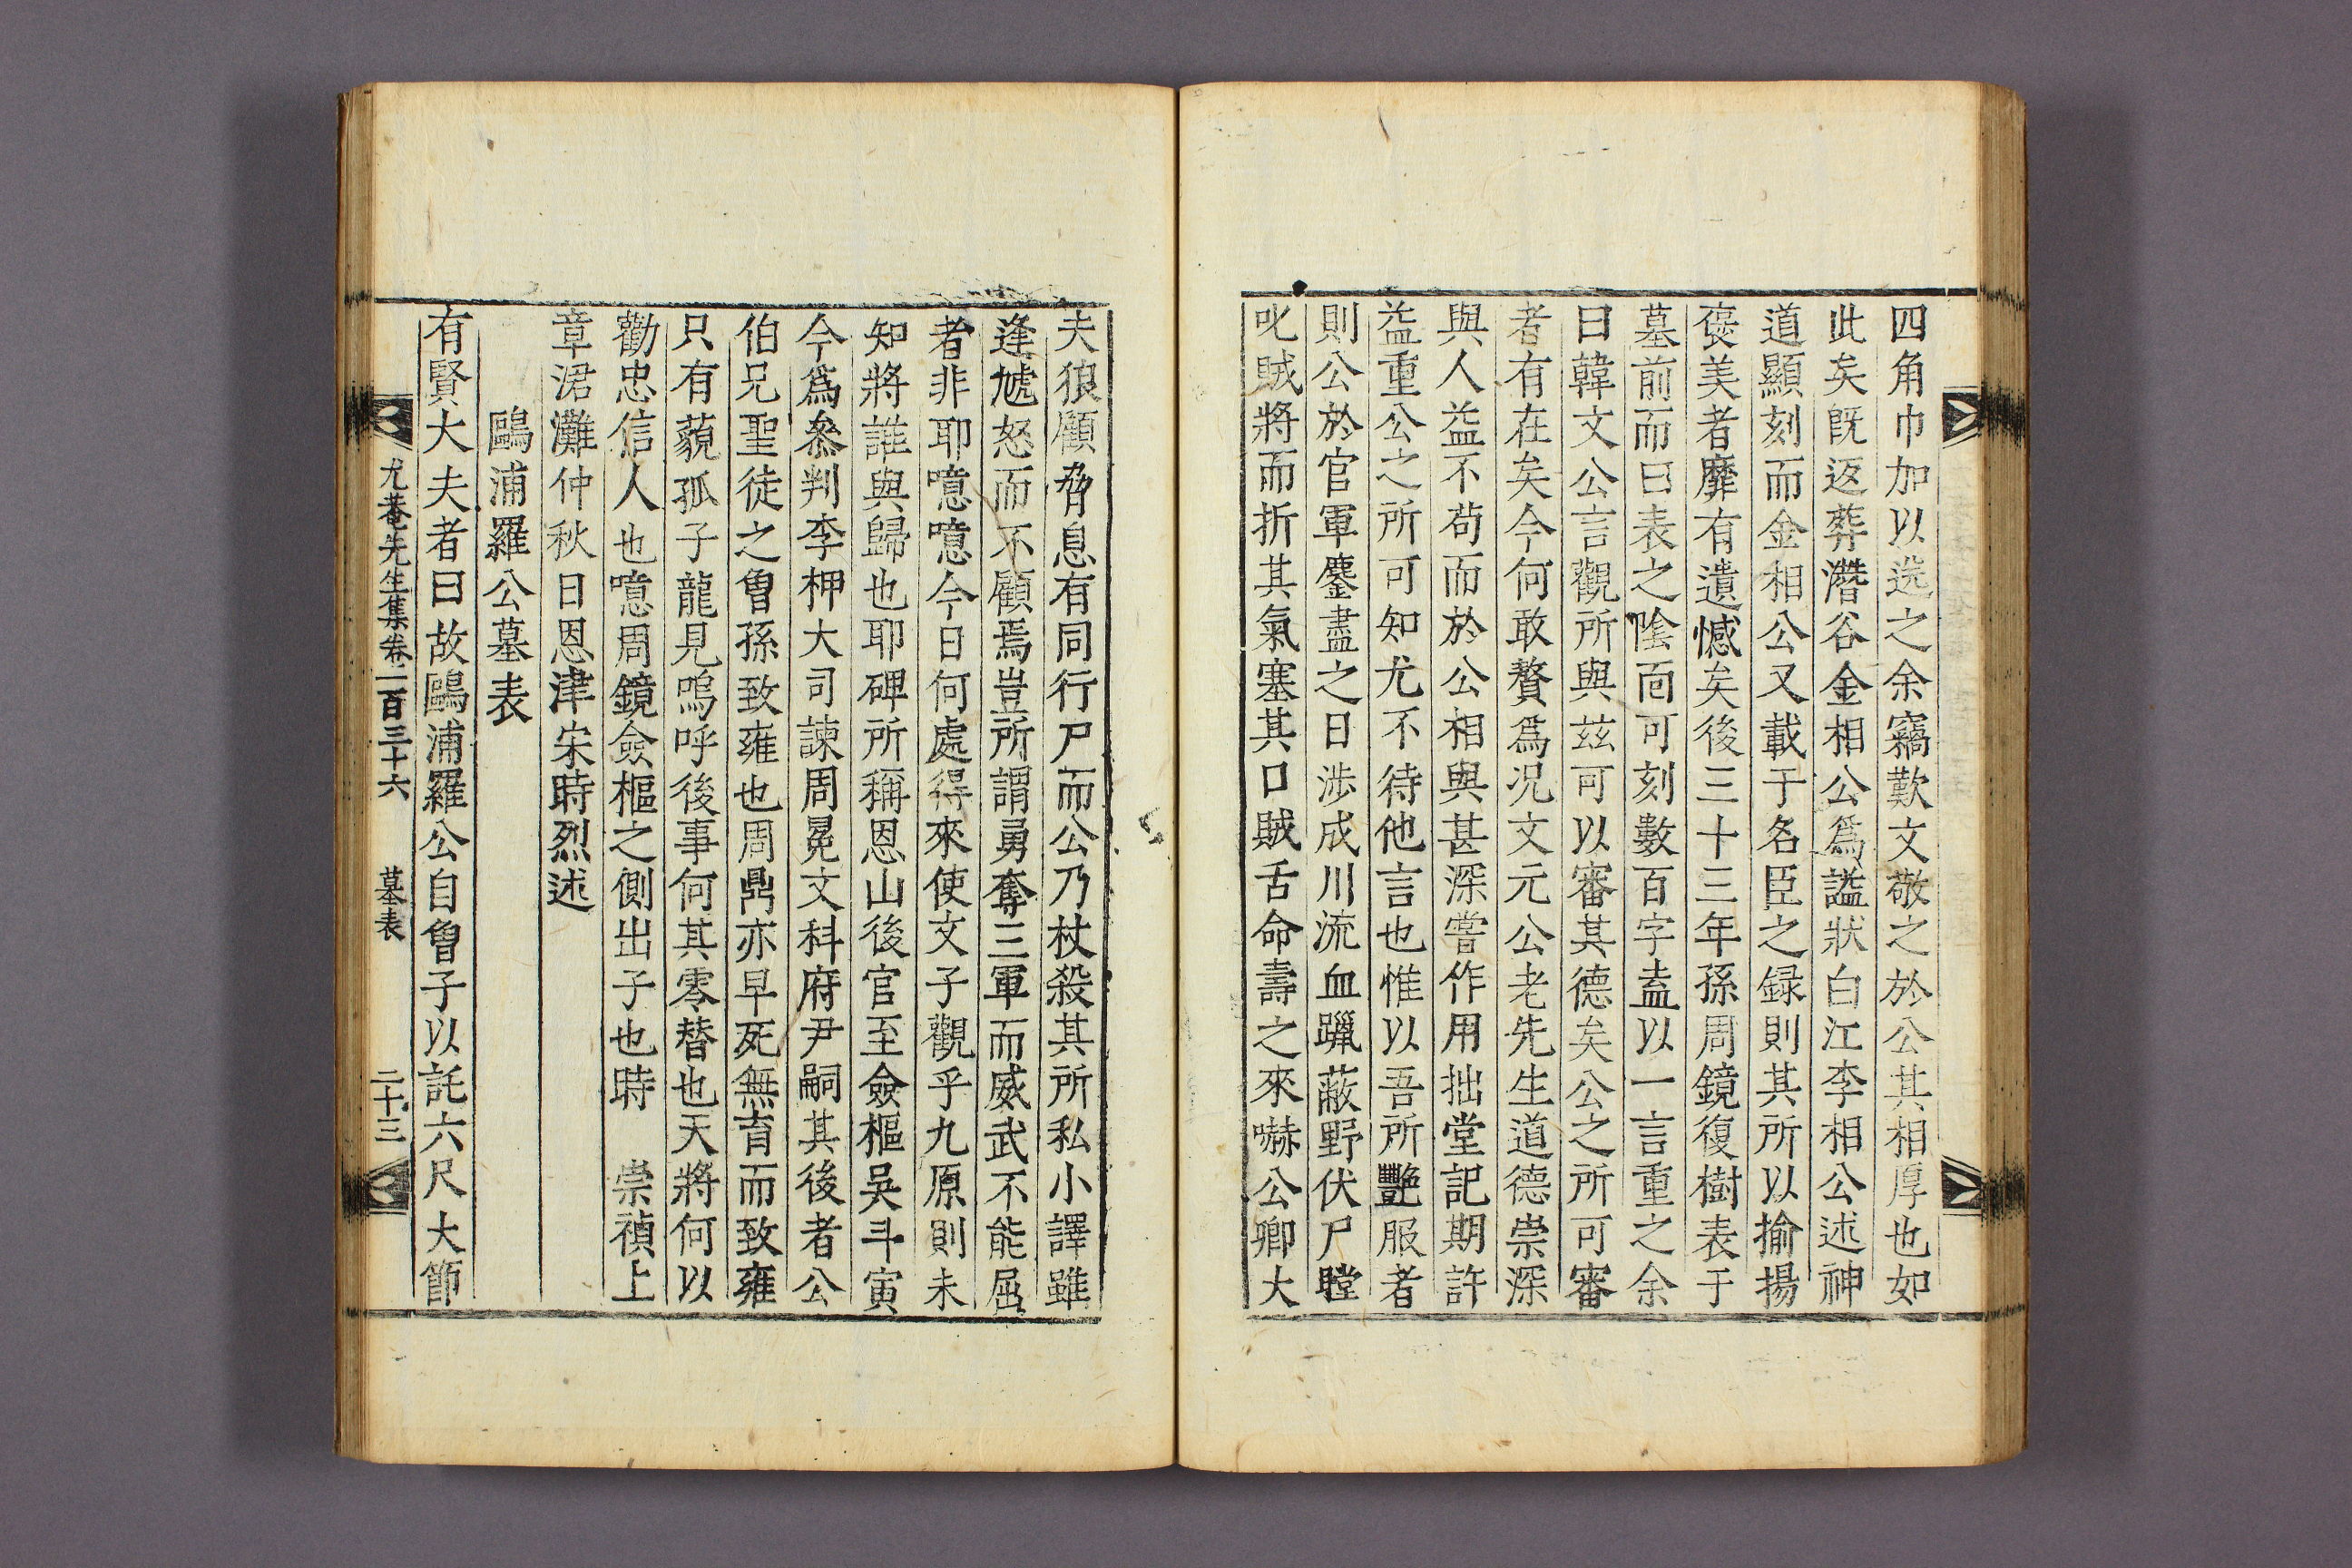 四角巾加以送之余竊歎文敬之於公其相厚也如
此矣旣返葬潛谷金相公爲謚狀白江李相公述神
道顯刻而金相公又載于名臣之録則其所以揄揚
褒美者靡有遺憾矣後三十三年孫周鏡復樹表于
墓前而曰表之陰面可刻數百字盍以一言重之余
曰韓文公言觀所與玆可以審其德矣公之所可審
者有在矣今何敢贅爲况文元公老先生道德崇深
與人益不苟而於公相與甚深嘗作用拙堂記期許
益重公之所可知尤不待他言也惟以吾所艷服者
則公於官軍鏖盡之日涉成川流血躐蔽野伏尸瞠
叱賊將而折其氣塞其口賊舌命壽之來嚇公卿大
夫狼顧脅息有同行尸而公乃杖殺其所私小譯雖
逢虓怒而不顧焉豈所謂勇奪三軍而威武不能屈
者非耶噫噫今日何處得來使文子觀乎九原則未
知將誰與歸也耶碑所稱恩山後官至僉樞吳斗寅
今爲叅判李柙大司諫周冕文科府尹嗣其後者公
伯兄聖徒之曾孫致雍也周鼎亦早死無育而致雍
只有藐孤子龍見嗚呼後事何其零替也天將何以
勸忠信人也噫周鏡僉樞之側出子也時 崇禎上
章涒灘仲秋日恩津宋時烈述
鷗浦羅公墓表
有賢大夫者曰故鷗浦羅公自曾子以託六尺大節
尤菴先生集卷一百三十六 墓表 二十三